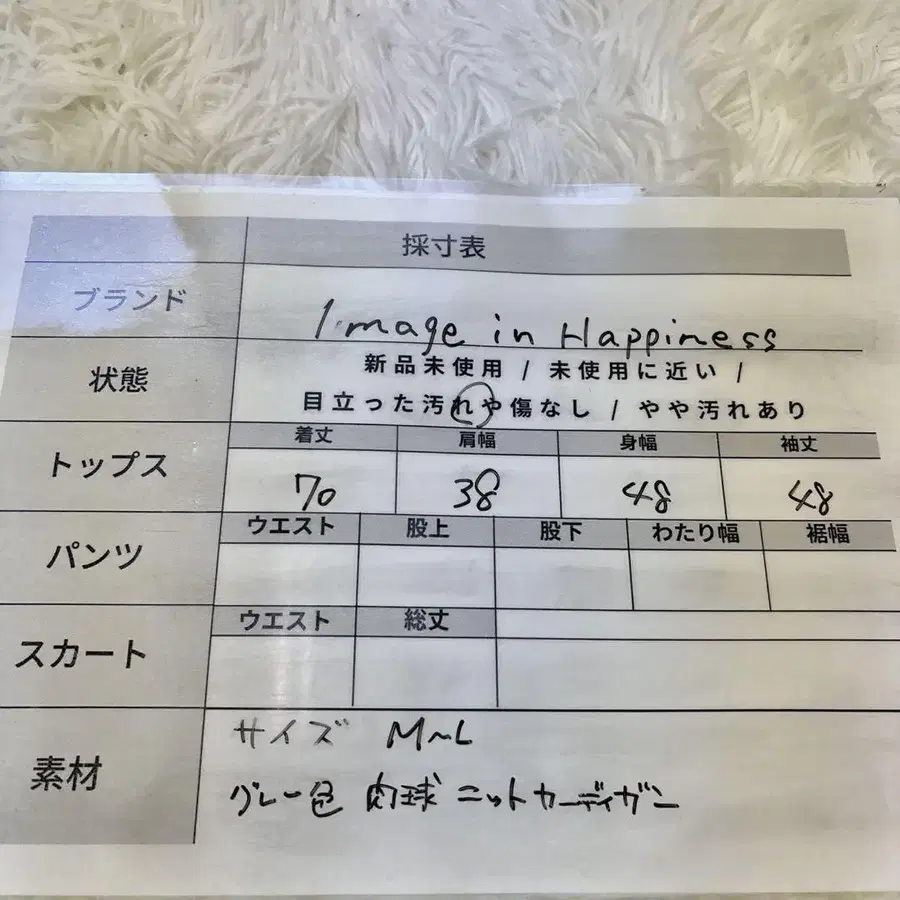 採寸表
ブランド Image in Happiness
状態 新品未使用 / 未使用に近い /
目立った汚れや傷なし / やや汚れあり
トップス 着丈 肩幅 身幅 袖丈
70 38 48 48
パンツ ウエスト 股上 股下 わたり幅 裾幅
スカート ウエスト 総丈
素材 サイズ M~L
グレー色 肉球 ニットカーディガン